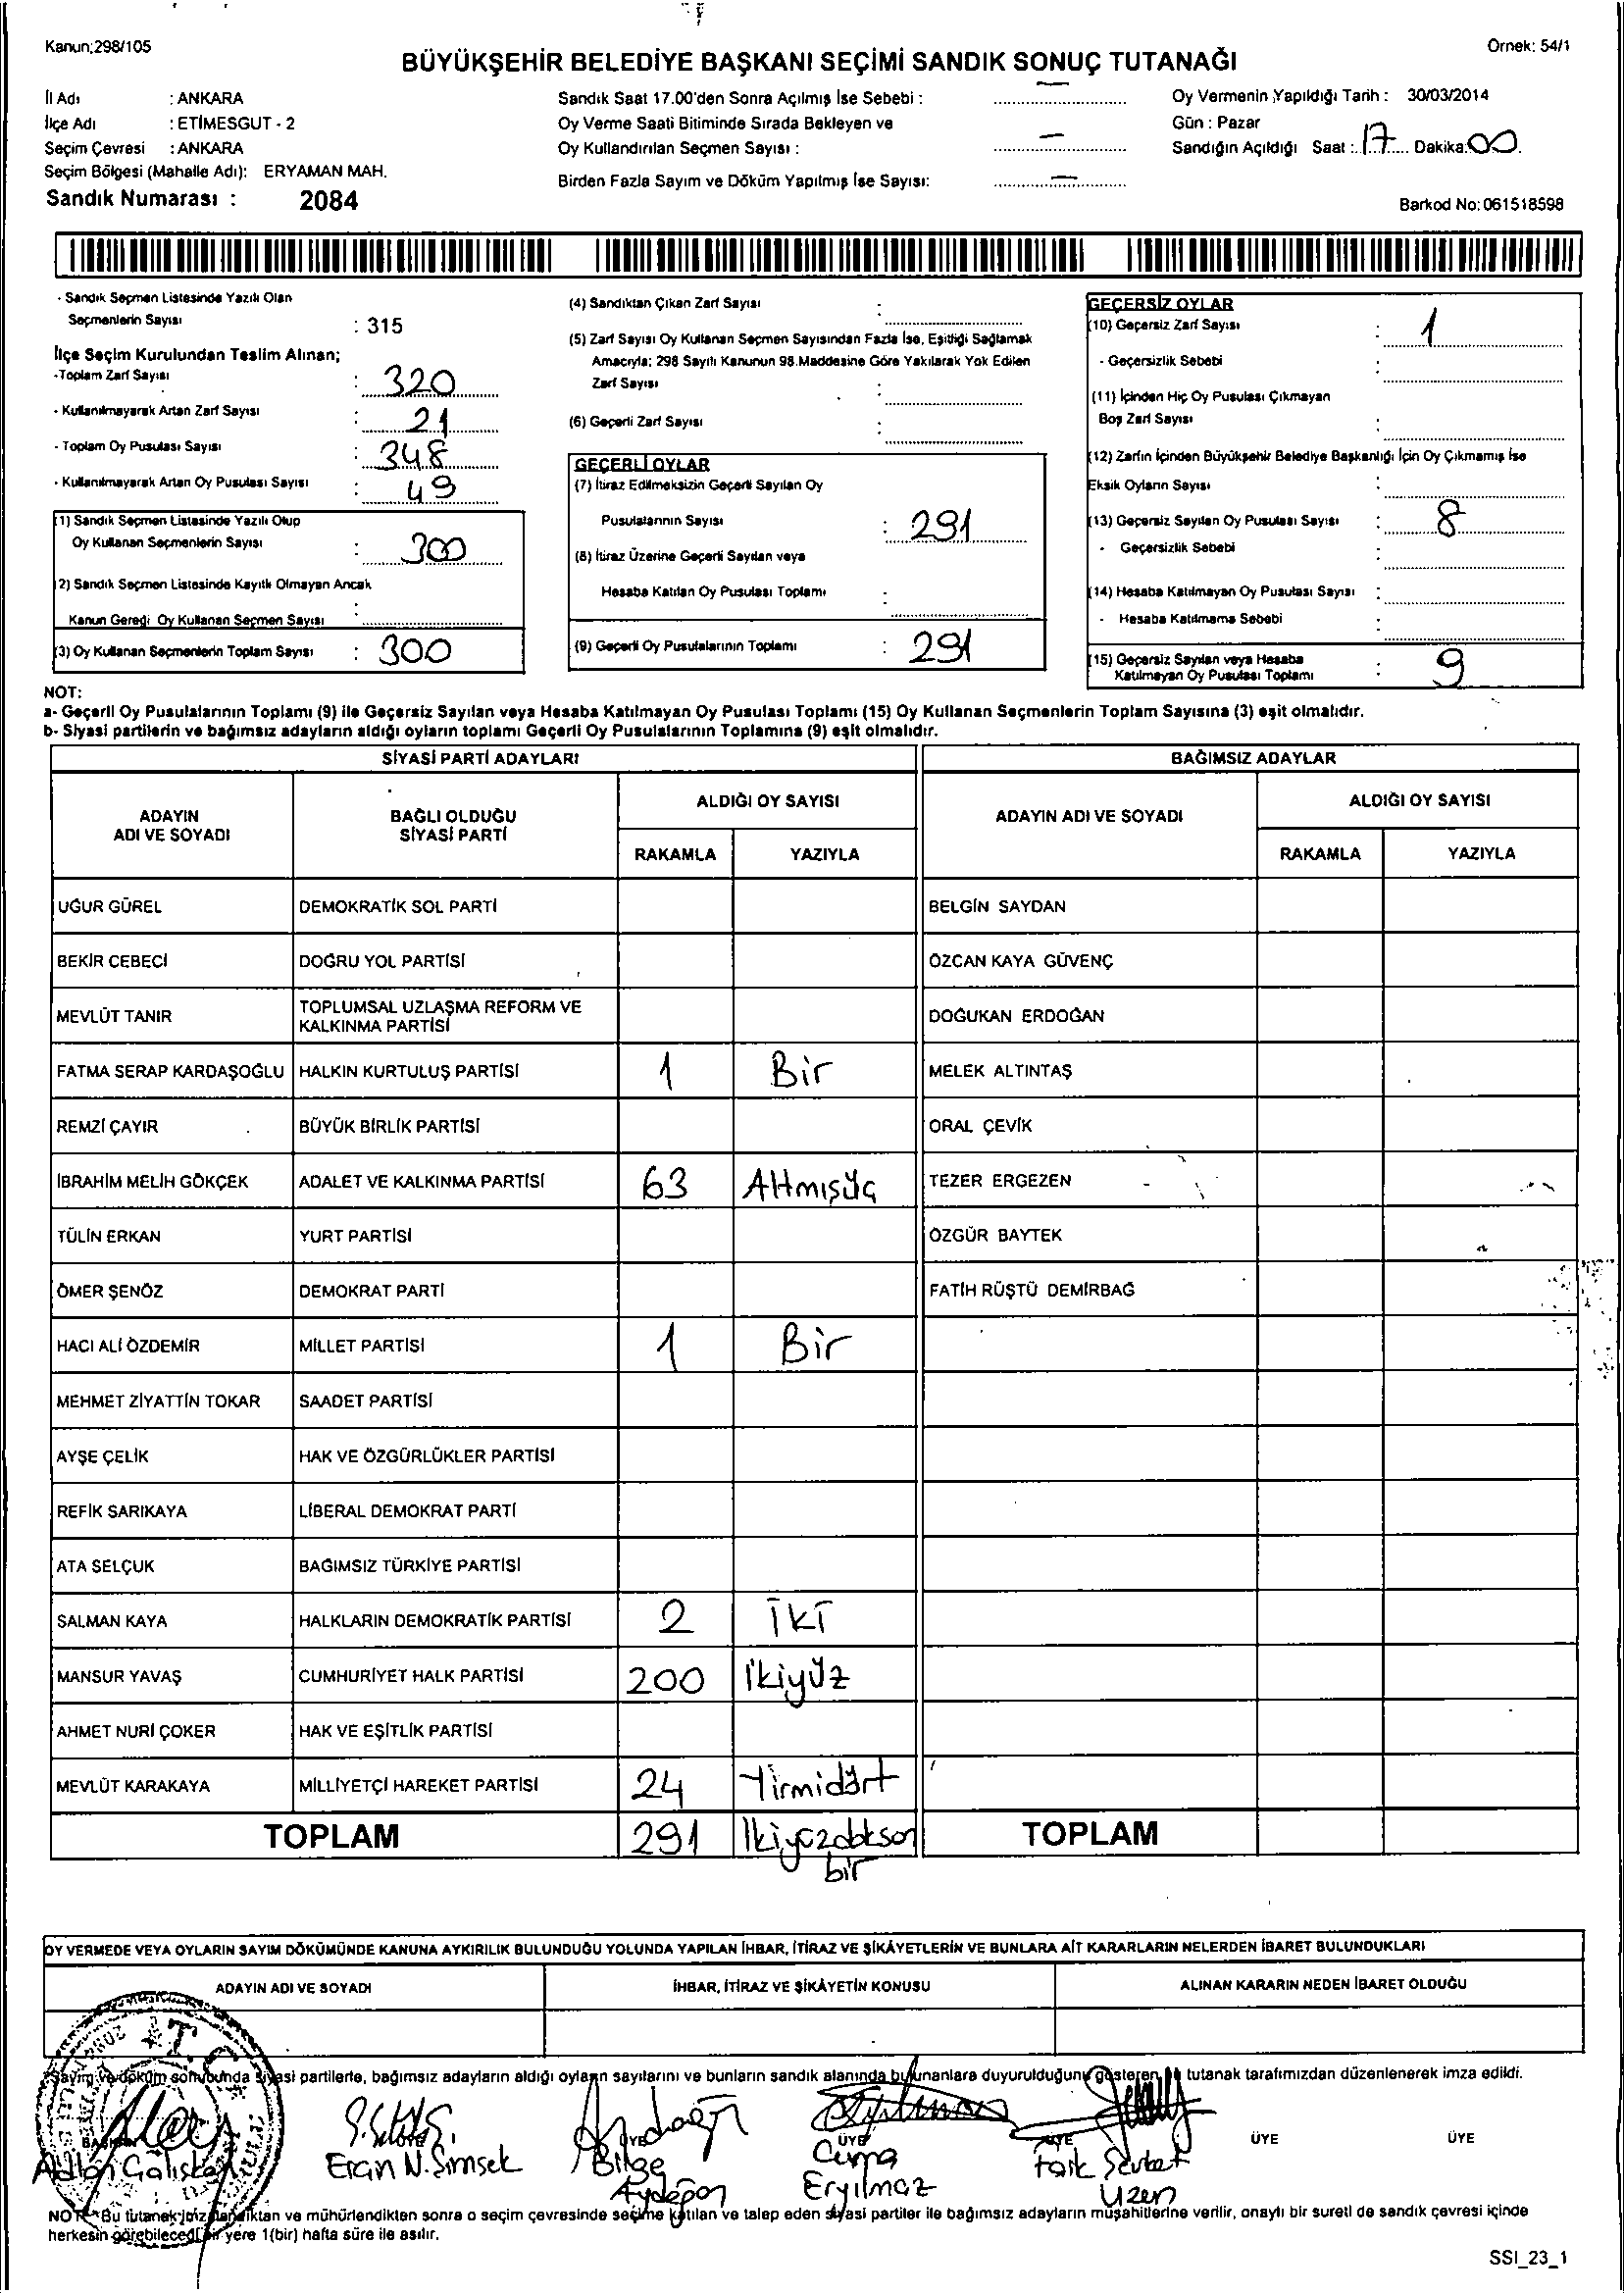 Kanun;298/105
Örnek: 54/1
BÜYÜKŞEHİR BELEDİYE BAŞKANI SEÇİMİ SANDIK SONUÇ TUTANAĞI
İl Adı : ANKARA
İlçe Adı : ETİMESGUT - 2
Seçim Çevresi : ANKARA
Seçim Bölgesi (Mahalle Adı): ERYAMAN MAH.
Sandık Numarası : 2084
Sandık Saat 17.00'den Sonra Açılmış İse Sebebi : —
Oy Verme Saati Bitiminde Sırada Bekleyen ve
Oy Kullandırılan Seçmen Sayısı : —
Birden Fazla Sayım ve Döküm Yapılmış İse Sayısı: —
Oy Vermenin Yapıldığı Tarih : 30/03/2014
Gün : Pazar
Sandığın Açıldığı Saat : 17 Dakika: 00
Barkod No: 061518598
- Sandık Seçmen Listesinde Yazılı Olan
Seçmenlerin Sayısı : 315
İlçe Seçim Kurulundan Teslim Alınan;
-Toplam Zarf Sayısı : 320
- Kullanılmayarak Artan Zarf Sayısı : 21
- Toplam Oy Pusulası Sayısı : 348
- Kullanılmayarak Artan Oy Pusulası Sayısı : 49
(1) Sandık Seçmen Listesinde Yazılı Olup
Oy Kullanan Seçmenlerin Sayısı : 300
(2) Sandık Seçmen Listesinde Kayıtlı Olmayan Ancak
Kanun Gereği Oy Kullanan Seçmen Sayısı :
(3) Oy Kullanan Seçmenlerin Toplam Sayısı : 300
(4) Sandıktan Çıkan Zarf Sayısı :
(5) Zarf Sayısı Oy Kullanan Seçmen Sayısından Fazla İse, Eşitliği Sağlamak
Amacıyla; 298 Sayılı Kanunun 98.Maddesine Göre Yakılarak Yok Edilen
Zarf Sayısı :
(6) Geçerli Zarf Sayısı :
GEÇERLİ OYLAR
(7) İtiraz Edilmeksizin Geçerli Sayılan Oy
Pusulalarının Sayısı : 291
(8) İtiraz Üzerine Geçerli Sayılan veya
Hesaba Katılan Oy Pusulası Toplamı :
(9) Geçerli Oy Pusulalarının Toplamı : 291
GEÇERSİZ OYLAR
(10) Geçersiz Zarf Sayısı : 1
- Geçersizlik Sebebi :
(11) İçinden Hiç Oy Pusulası Çıkmayan
Boş Zarf Sayısı :
(12) Zarfın İçinden Büyükşehir Belediye Başkanlığı İçin Oy Çıkmamış İse
Eksik Oyların Sayısı :
(13) Geçersiz Sayılan Oy Pusulası Sayısı : 8
- Geçersizlik Sebebi :
(14) Hesaba Katılmayan Oy Pusulası Sayısı :
- Hesaba Katılmama Sebebi :
(15) Geçersiz Sayılan veya Hesaba
Katılmayan Oy Pusulası Toplamı : 9
NOT:
a- Geçerli Oy Pusulalarının Toplamı (9) ile Geçersiz Sayılan veya Hesaba Katılmayan Oy Pusulası Toplamı (15) Oy Kullanan Seçmenlerin Toplam Sayısına (3) eşit olmalıdır.
b- Siyasi partilerin ve bağımsız adayların aldığı oyların toplamı Geçerli Oy Pusulalarının Toplamına (9) eşit olmalıdır.
SİYASİ PARTİ ADAYLARI BAĞIMSIZ ADAYLAR
ADAYIN
ADI VE SOYADI
BAĞLI OLDUĞU
SİYASİ PARTİ
ALDIĞI OY SAYISI
RAKAMLA YAZIYLA
ADAYIN ADI VE SOYADI
ALDIĞI OY SAYISI
RAKAMLA YAZIYLA
UĞUR GÜREL DEMOKRATİK SOL PARTİ BELGİN SAYDAN
BEKİR CEBECİ DOĞRU YOL PARTİSİ ÖZCAN KAYA GÜVENÇ
MEVLÜT TANIR TOPLUMSAL UZLAŞMA REFORM VE
KALKINMA PARTİSİ DOĞUKAN ERDOĞAN
FATMA SERAP KARDAŞOĞLU HALKIN KURTULUŞ PARTİSİ 1 Bir MELEK ALTINTAŞ
REMZİ ÇAYIR BÜYÜK BİRLİK PARTİSİ ORAL ÇEVİK
İBRAHİM MELİH GÖKÇEK ADALET VE KALKINMA PARTİSİ 63 Altmışüç TEZER ERGEZEN
TÜLİN ERKAN YURT PARTİSİ ÖZGÜR BAYTEK
ÖMER ŞENÖZ DEMOKRAT PARTİ FATİH RÜŞTÜ DEMİRBAĞ
HACI ALİ ÖZDEMİR MİLLET PARTİSİ 1 Bir
MEHMET ZİYATTİN TOKAR SAADET PARTİSİ
AYŞE ÇELİK HAK VE ÖZGÜRLÜKLER PARTİSİ
REFİK SARIKAYA LİBERAL DEMOKRAT PARTİ
ATA SELÇUK BAĞIMSIZ TÜRKİYE PARTİSİ
SALMAN KAYA HALKLARIN DEMOKRATİK PARTİSİ 2 İki
MANSUR YAVAŞ CUMHURİYET HALK PARTİSİ 200 İkiyüz
AHMET NURİ ÇOKER HAK VE EŞİTLİK PARTİSİ
MEVLÜT KARAKAYA MİLLİYETÇİ HAREKET PARTİSİ 24 Yirmidört
TOPLAM 291 İkiyüzdoksan
bir
TOPLAM
OY VERMEDE VEYA OYLARIN SAYIM DÖKÜMÜNDE KANUNA AYKIRILIK BULUNDUĞU YOLUNDA YAPILAN İHBAR, İTİRAZ VE ŞİKÂYETLERİN VE BUNLARA AİT KARARLARIN NELERDEN İBARET BULUNDUKLARI
ADAYIN ADI VE SOYADI İHBAR, İTİRAZ VE ŞİKÂYETİN KONUSU ALINAN KARARIN NEDEN İBARET OLDUĞU
T.C.
Sayım ve döküm sonucunda siyasi partilerle, bağımsız adayların aldığı oyların sayılarını ve bunların sandık alanında bulunanlara duyurulduğunu gösteren bu tutanak tarafımızdan düzenlenerek imza edildi.
BAŞKAN ÜYE ÜYE ÜYE ÜYE ÜYE ÜYE
Adlan Çalışkan Ercan N. Şimşek Bilge Cuma Faik Sevket
Aydoğan Eryılmaz Uzen
NOT: Bu tutanak imzalandıktan ve mühürlendikten sonra o seçim çevresinde seçime katılan ve talep eden siyasi partiler ile bağımsız adayların müşahitlerine verilir, onaylı bir sureti de sandık çevresi içinde
herkesin görebileceği bir yere 1(bir) hafta süre ile asılır.
SSI_23_1